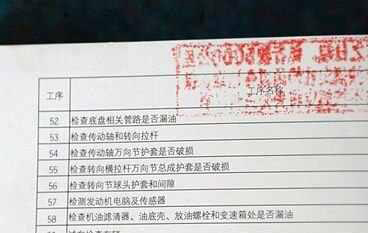 工序 工序名称
52 检查底盘相关管路是否漏油
53 检查传动轴和转向拉杆
54 检查传动轴万向节护套是否破损
55 检查转向横拉杆万向节总成护套是否破损
56 检查转向节球头护套和间隙
57 检测发动机电脑及传感器
58 检查机油滤清器、油底壳、放油螺栓和变速箱处是否漏油